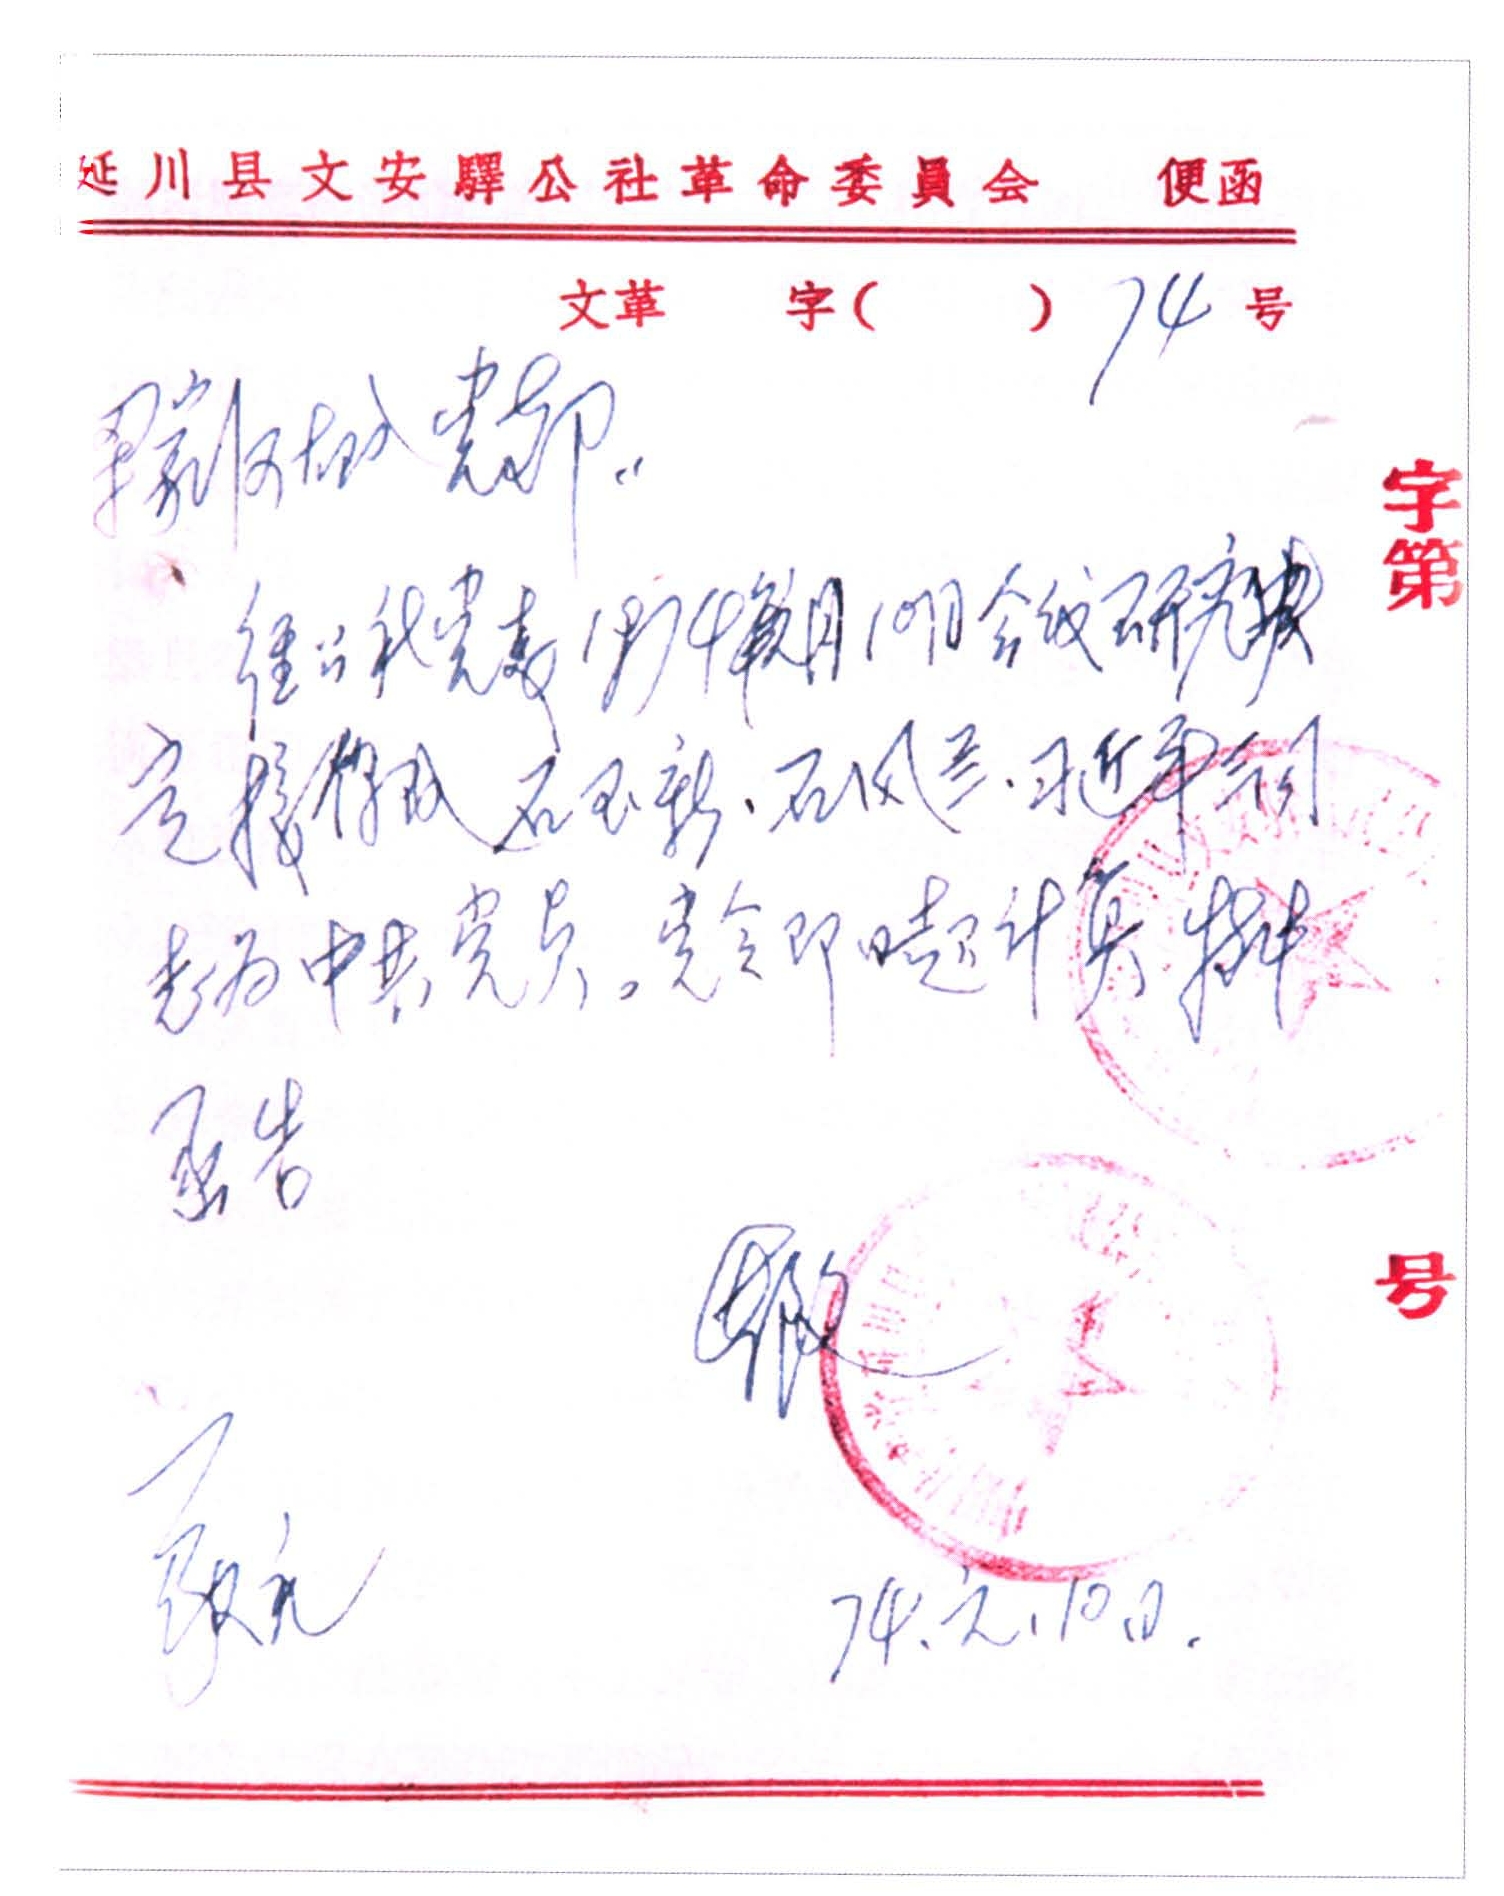 延川县文安驛公社革命委員会 便函
文革 字( ) 74 号
梁家河大队党支部:
经公社党委1974年元月10日会议研究决
定接收 石玉新、石风兰、习近平同
志为中共党员。党令即时起计算 特此
函告
敬礼
74.元.10日.
字第
号